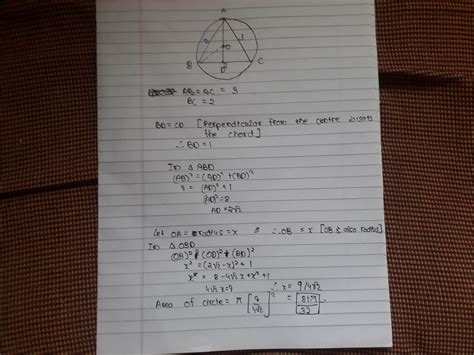 A
3
3
O
B
D
C
AB = BC = 3
BC = 2
BD = CD [Perpendicular from the centre bisects
the chord]
∴ BD = 1
In Δ ABD
(AB)² = (AD)² + (BD)²
9 = (AD)² + 1
(AD)² = 8
AD = 2√2
Let OA = radius = x ∴ OB = x [OB is also radius]
In Δ OBD
(OB)² = (OD)² + (BD)²
x² = (2√2 - x)² + 1
x² = 8 - 4√2 x + x² + 1
4√2 x = 9 ∴ x = 9/4√2
Area of circle = π [9/4√2]² = 81π/32